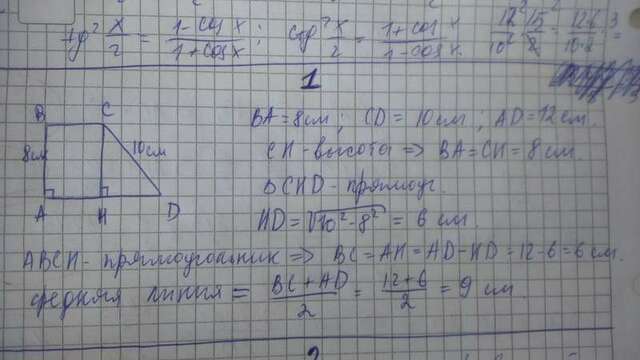 tg² x/2 = (1-cos x)/(1+cos x); ctg² x/2 = (1+cos x)/(1-cos x)
1
B C
8см 10см
A H D
BA=8см; CD=10см; AD=12см.
CH-высота => BA=CH=8см.
ΔCHD-прямоуг.
HD=√10²-8² = 6 см.
ABCH-прямоугольник => BC=AH=AD-HD=12-6=6см.
средняя линия = (BC+AD)/2 = (12+6)/2 = 9 см
2